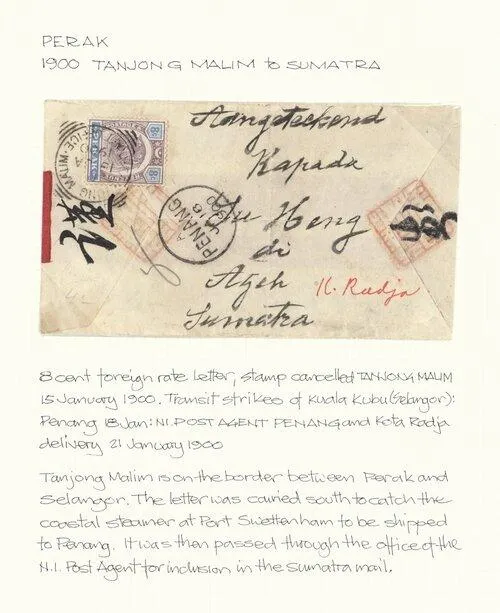 PERAK
1900 TANJONG MALIM to SUMATRA
Aangeteekend
Kapada
Heng
di
Atjeh
Sumatra
K. Radja
PENANG
A
JA 18
1900
PERAK
8c 8c
8 cent foreign rate letter, stamp cancelled TANJONG MALIM
15 January 1900. Transit strikes of Kuala Kubu (Selangor):
Penang 18 Jan: N.I. POST AGENT PENANG and Kota Radja
delivery 21 January 1900
Tanjong Malim is on the border between Perak and
Selangor. The letter was carried south to catch the
coastal steamer at Port Swettenham to be shipped
to Penang. It was then passed through the office of the
N.I. Post Agent for inclusion in the Sumatra mail.